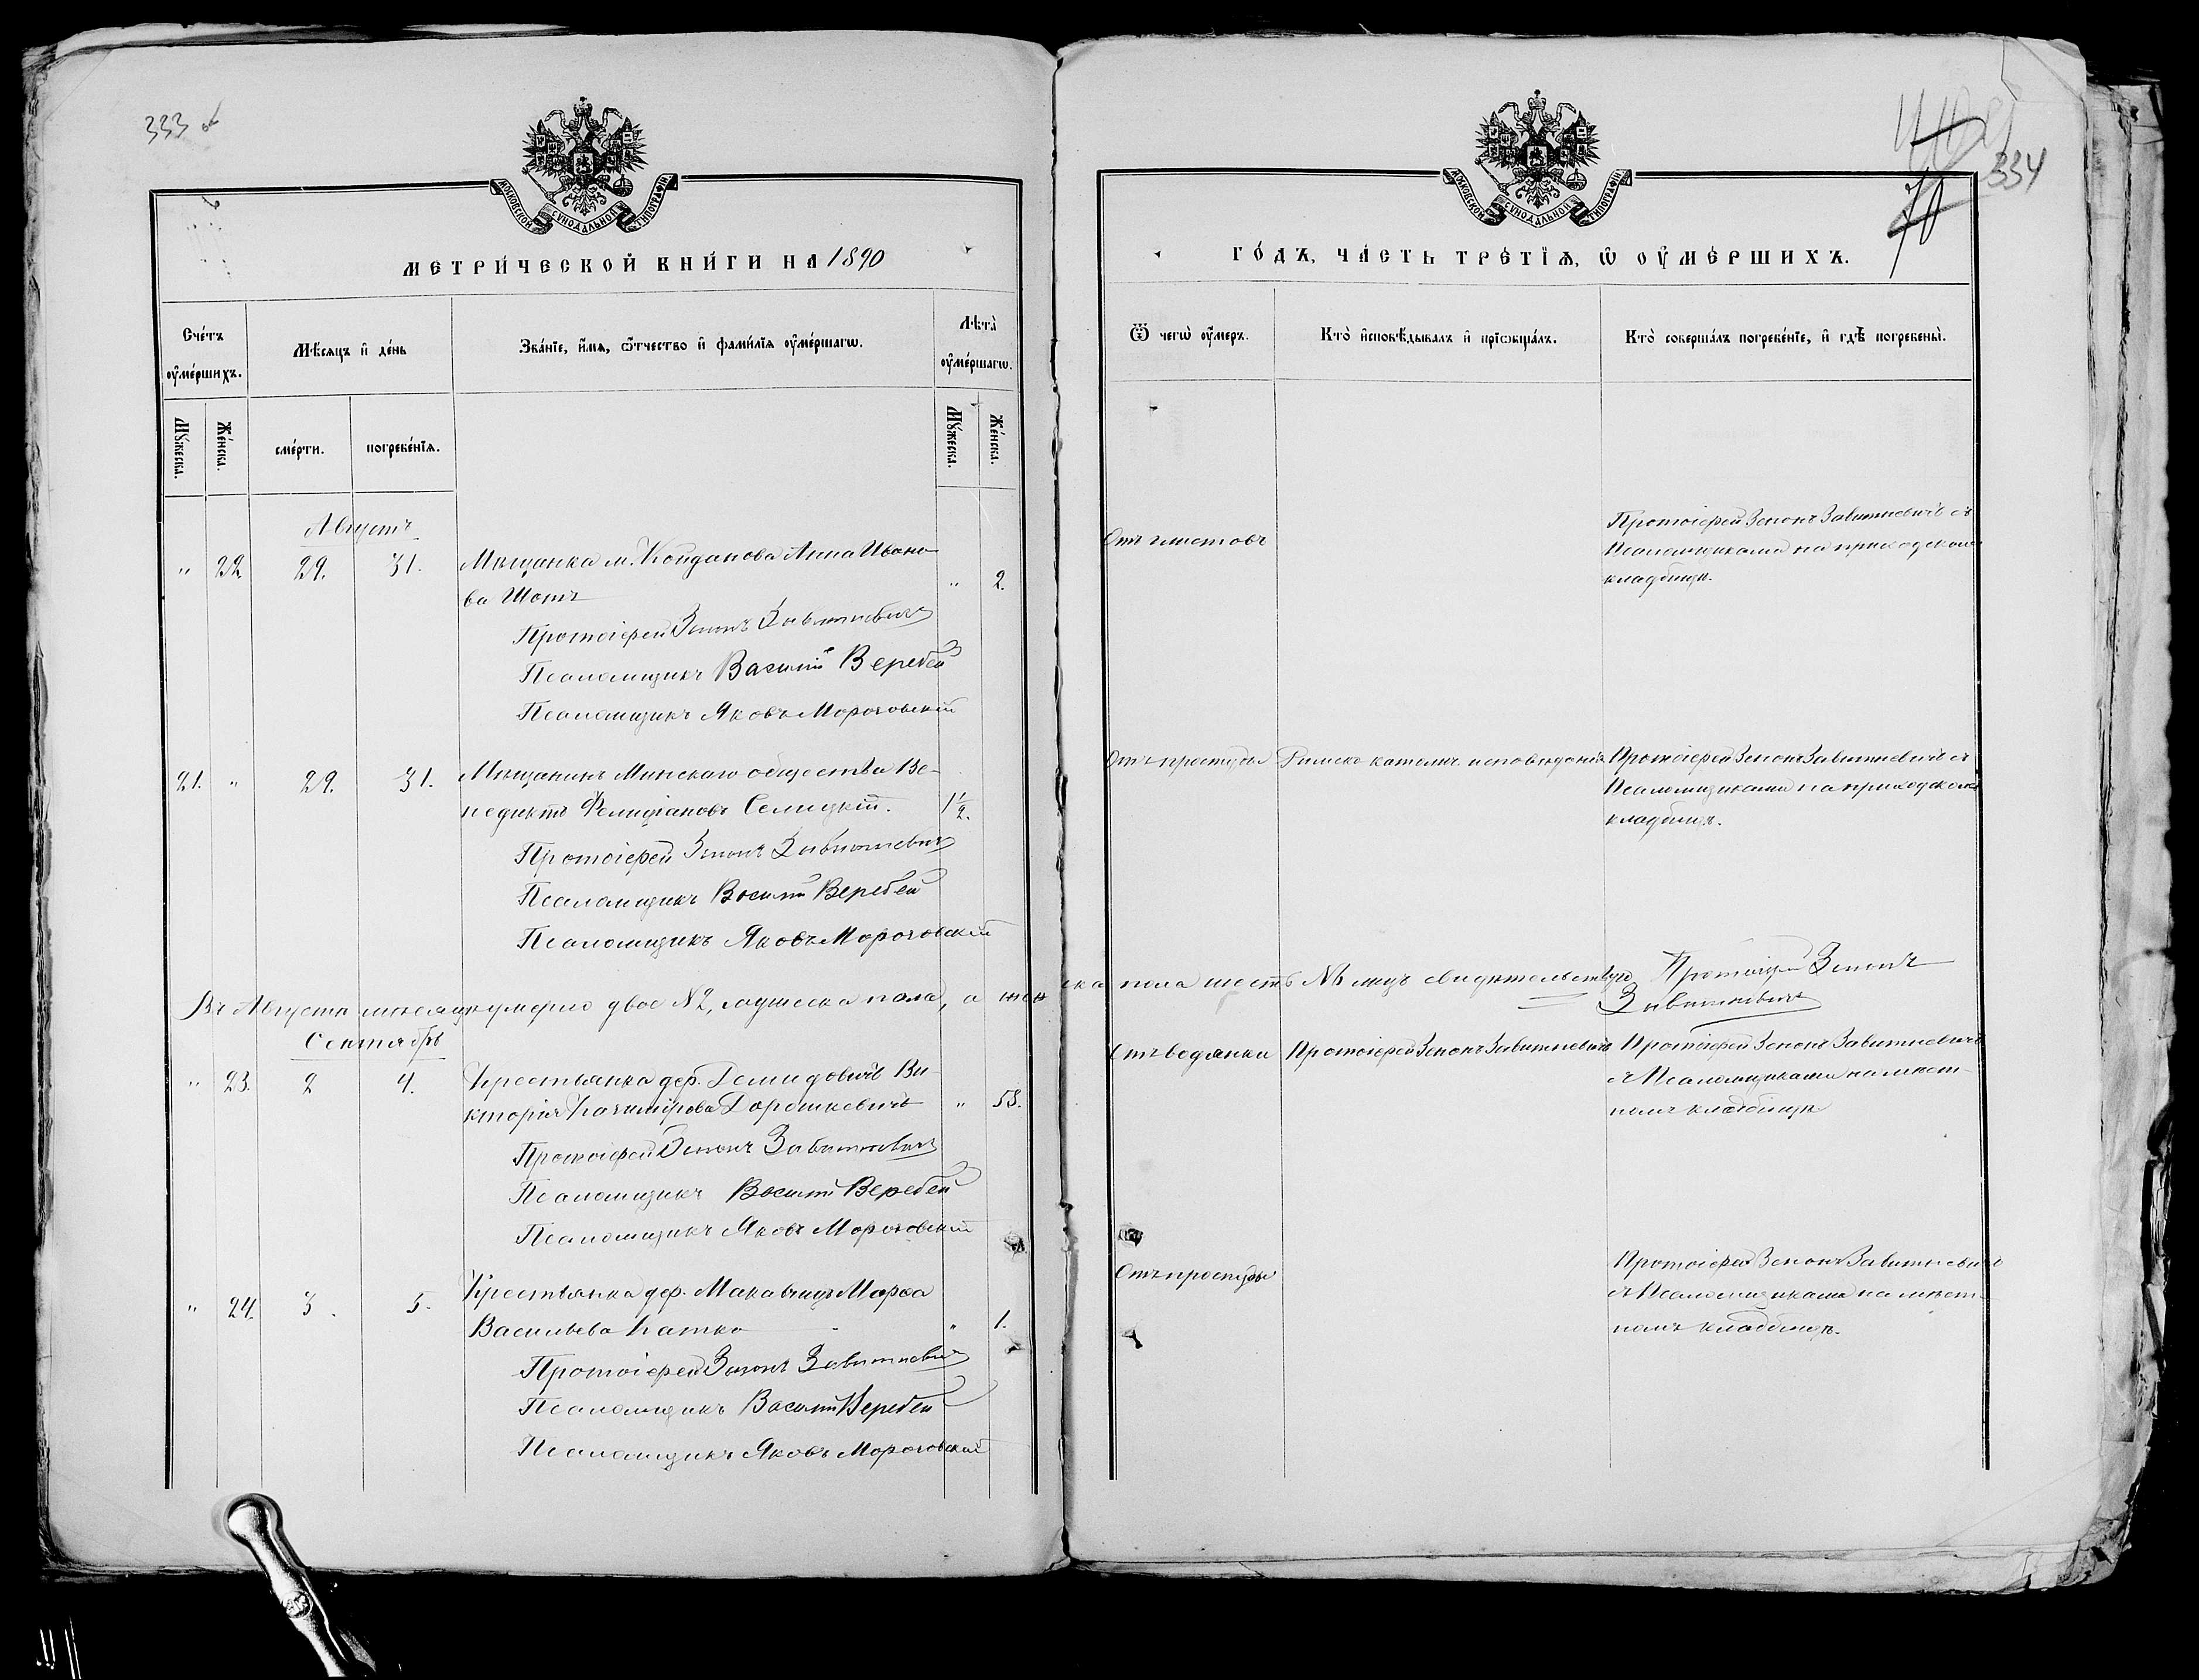 333 об
МОСКОВСКОЙ СѴНОДАЛЬНОЙ ТИПОГРАФІИ
МЕТРИ́ЧЕСКОЙ КНИ́ГИ НА 1890
Сче́тъ ᲂу҆ме́ршихъ.
Мѣ́сяцъ и҆ де́нь
Зва́нїе, и҆́мя, ѻ҆́тчество и҆ фами́лїя ᲂу҆ме́ршагѡ.
Лѣта̀ ᲂу҆ме́ршагѡ.
Мꙋ́жеска.
Же́нска.
сме́рти.
погребе́нїя.
Мꙋ́жеска.
Же́нска.
Августъ
" 22 29. 31. Мѣщанка м. Койданова Анна Ивано-
ва Шотъ " 2.
Протоіерей Зенонъ Завитневичъ
Псаломщикъ Василій Веребей
Псаломщикъ Яковъ Мороговскій
21. " 29. 31. Мѣщанинъ Минскаго общества Ве-
недиктъ Фелиціановъ Селицкій. 1 1/2.
Протоіерей Зенонъ Завитневичъ
Псаломщикъ Василій Веребей
Псаломщикъ Яковъ Мороговскій
Въ Августѣ мѣсяцѣ умерло двое №2, мужеска пола, а жен
Сентябрь
" 23. 2 4. Крестьянка дер. Демидовичъ Ви-
кторія Казимірова Дорошкевичъ " 58.
Протоіерей Зенонъ Завитневичъ
Псаломщикъ Василій Веребей
Псаломщикъ Яковъ Мороговскій
" 24. 3. 5. Крестьянка дер. Макавчицъ Марѳа
Васильева Катко " 1.
Протоіерей Зенонъ Завитневичъ
Псаломщикъ Василій Веребей
Псаломщикъ Яковъ Мороговскій
70
334
МОСКОВСКОЙ СѴНОДАЛЬНОЙ ТИПОГРАФІИ
ГО́ДЪ, ЧА́СТЬ ТРЕ́ТЇѦ, Ѡ҆ ОУ҆МЕ́РШИХЪ.
Ѿ чегѡ̀ ᲂу҆́меръ.
Кто̀ и҆сповѣ́дывалъ и҆ прїѡбща́лъ.
Кто̀ соверша́лъ погребе́нїе, и҆ гдѣ̀ погребены̀.
Отъ глистовъ
Протоіерей Зенонъ Завитневичъ съ
Псаломщиками на приходскомъ
кладбищѣ.
Отъ простуды Римско католич. исповѣданія Протоіерей Зенонъ Завитневичъ съ
Псаломщиками на приходскомъ
кладбищѣ.
ска пола шесть №6 лицъ свидѣтельствую Протоіерей Зенонъ
Завитневичъ
Отъ водянки Протоіерей Зенонъ Завитневичъ Протоіерей Зенонъ Завитневичъ
съ Псаломщиками на мѣст-
номъ кладбищѣ
Отъ простуды
Протоіерей Зенонъ Завитневичъ
съ Псаломщиками на мѣст-
номъ кладбищѣ.